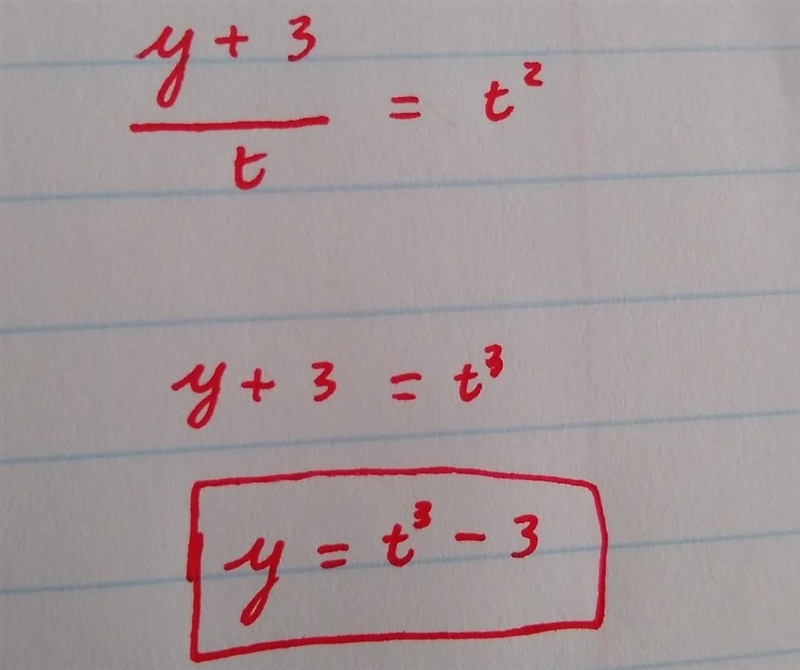 y + 3
t
= t²
y + 3 = t³
y = t³ - 3